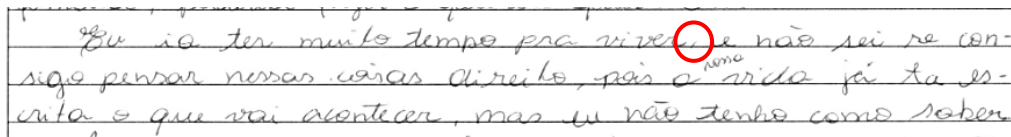 Eu ia ter muito tempo pra viver, e não sei se con-
sigo pensar nessas coisas direito, pois a nossa vida já ta es-
crita o que vai acontecer, mas eu não tenho como saber